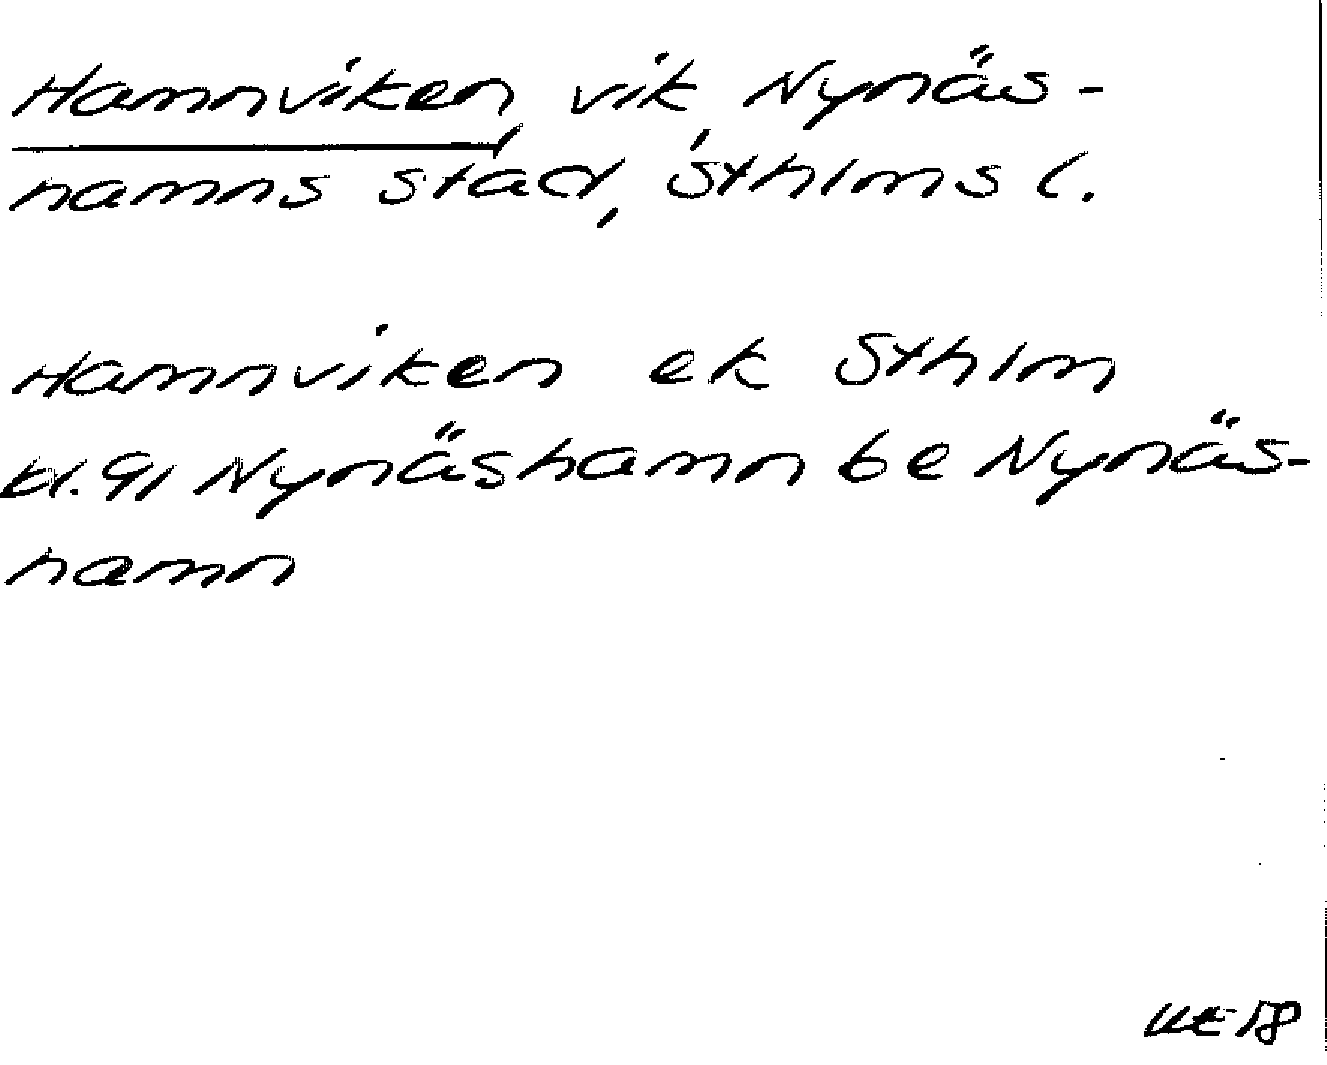 Hamnviken, vik, Nynäs-
hamns stad, Sthlms l.
Hamnviken ek Sthlm
bl. 91 Nynäshamn be Nynäs-
hamn